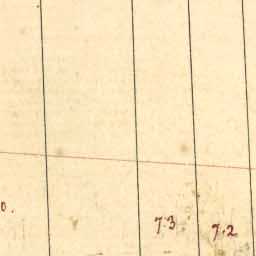 0. 7.3 7.2